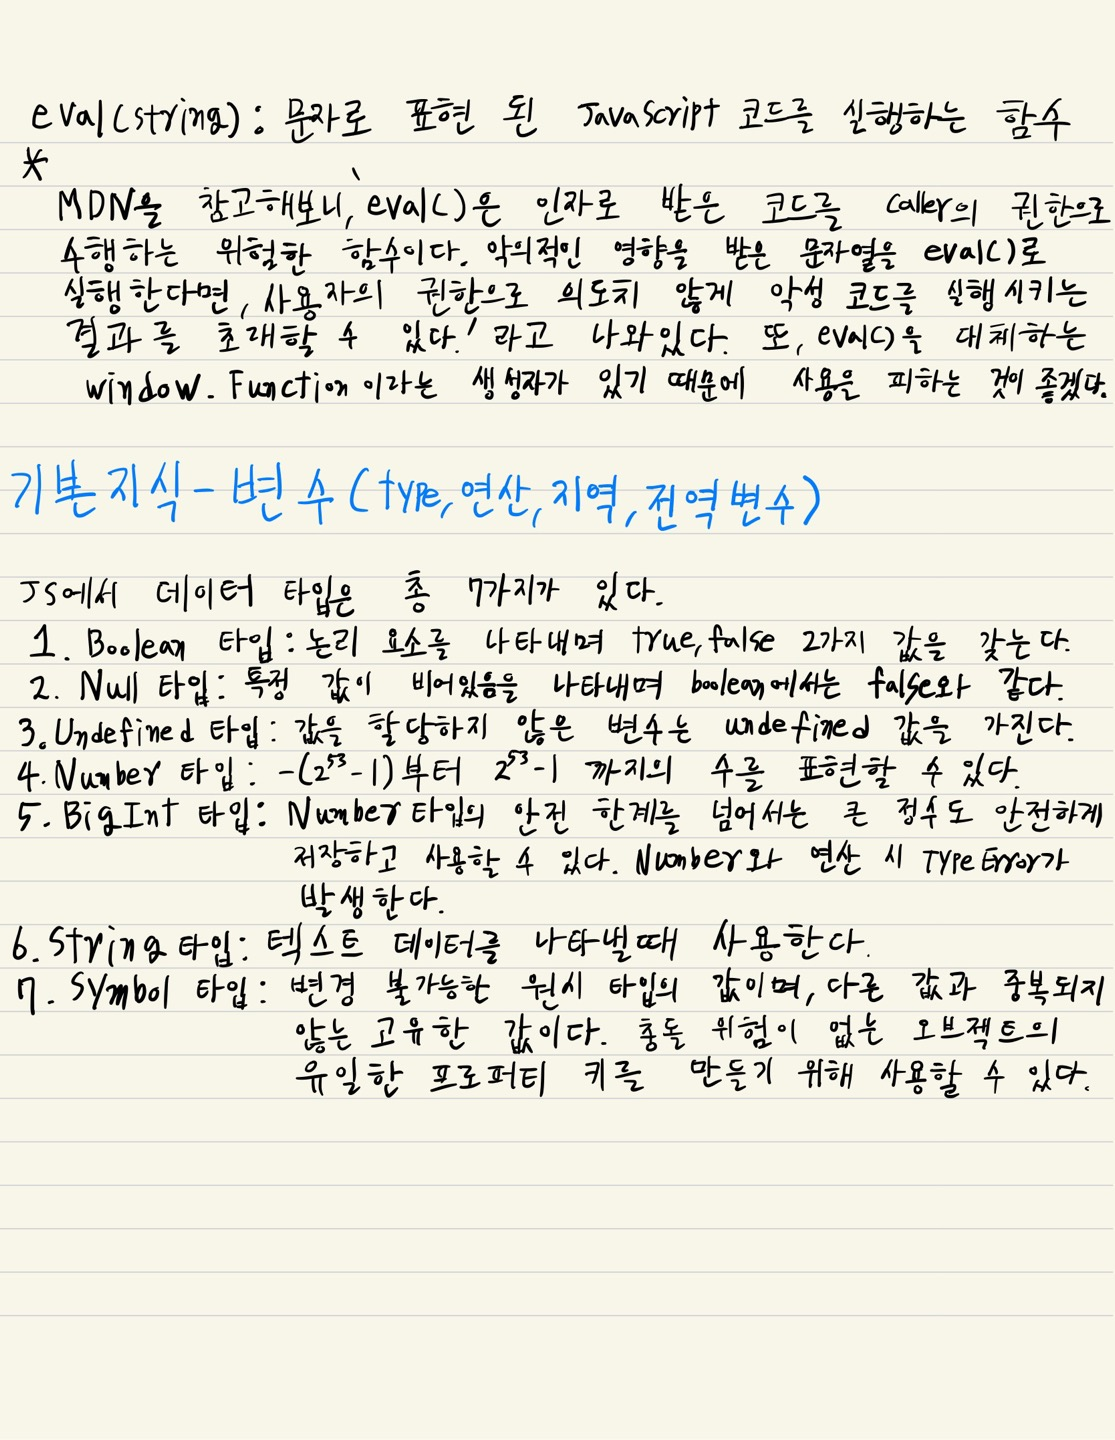 eval(string): 문자로 표현 된 JavaScript 코드를 실행하는 함수
*
MDN을 참고해보니, 'eval()은 인자로 받은 코드를 caller의 권한으로
수행하는 위험한 함수이다. 악의적인 영향을 받은 문자열을 eval()로
실행한다면, 사용자의 권한으로 의도치 않게 악성 코드를 실행시키는
결과를 초래할 수 있다.' 라고 나와있다. 또, eval()을 대체하는
window.Function이라는 생성자가 있기 때문에 사용을 피하는 것이 좋겠다.
기본지식-변수(type,연산,지역,전역변수)
JS에서 데이터 타입은 총 7가지가 있다.
1. Boolean 타입: 논리 요소를 나타내며 true,false 2가지 값을 갖는다.
2. Null 타입: 특정 값이 비어있음을 나타내며 boolean에서는 false와 같다.
3. Undefined 타입: 값을 할당하지 않은 변수는 undefined 값을 가진다.
4. Number 타입: -(2⁵³-1)부터 2⁵³-1 까지의 수를 표현할 수 있다.
5. BigInt 타입: Number타입의 안전 한계를 넘어서는 큰 정수도 안전하게
저장하고 사용할 수 있다. Number와 연산 시 TypeError가
발생한다.
6. String 타입: 텍스트 데이터를 나타낼때 사용한다.
7. Symbol 타입: 변경 불가능한 원시 타입의 값이며, 다른 값과 중복되지
않는 고유한 값이다. 충돌 위험이 없는 오브젝트의
유일한 프로퍼티 키를 만들기 위해 사용할 수 있다.